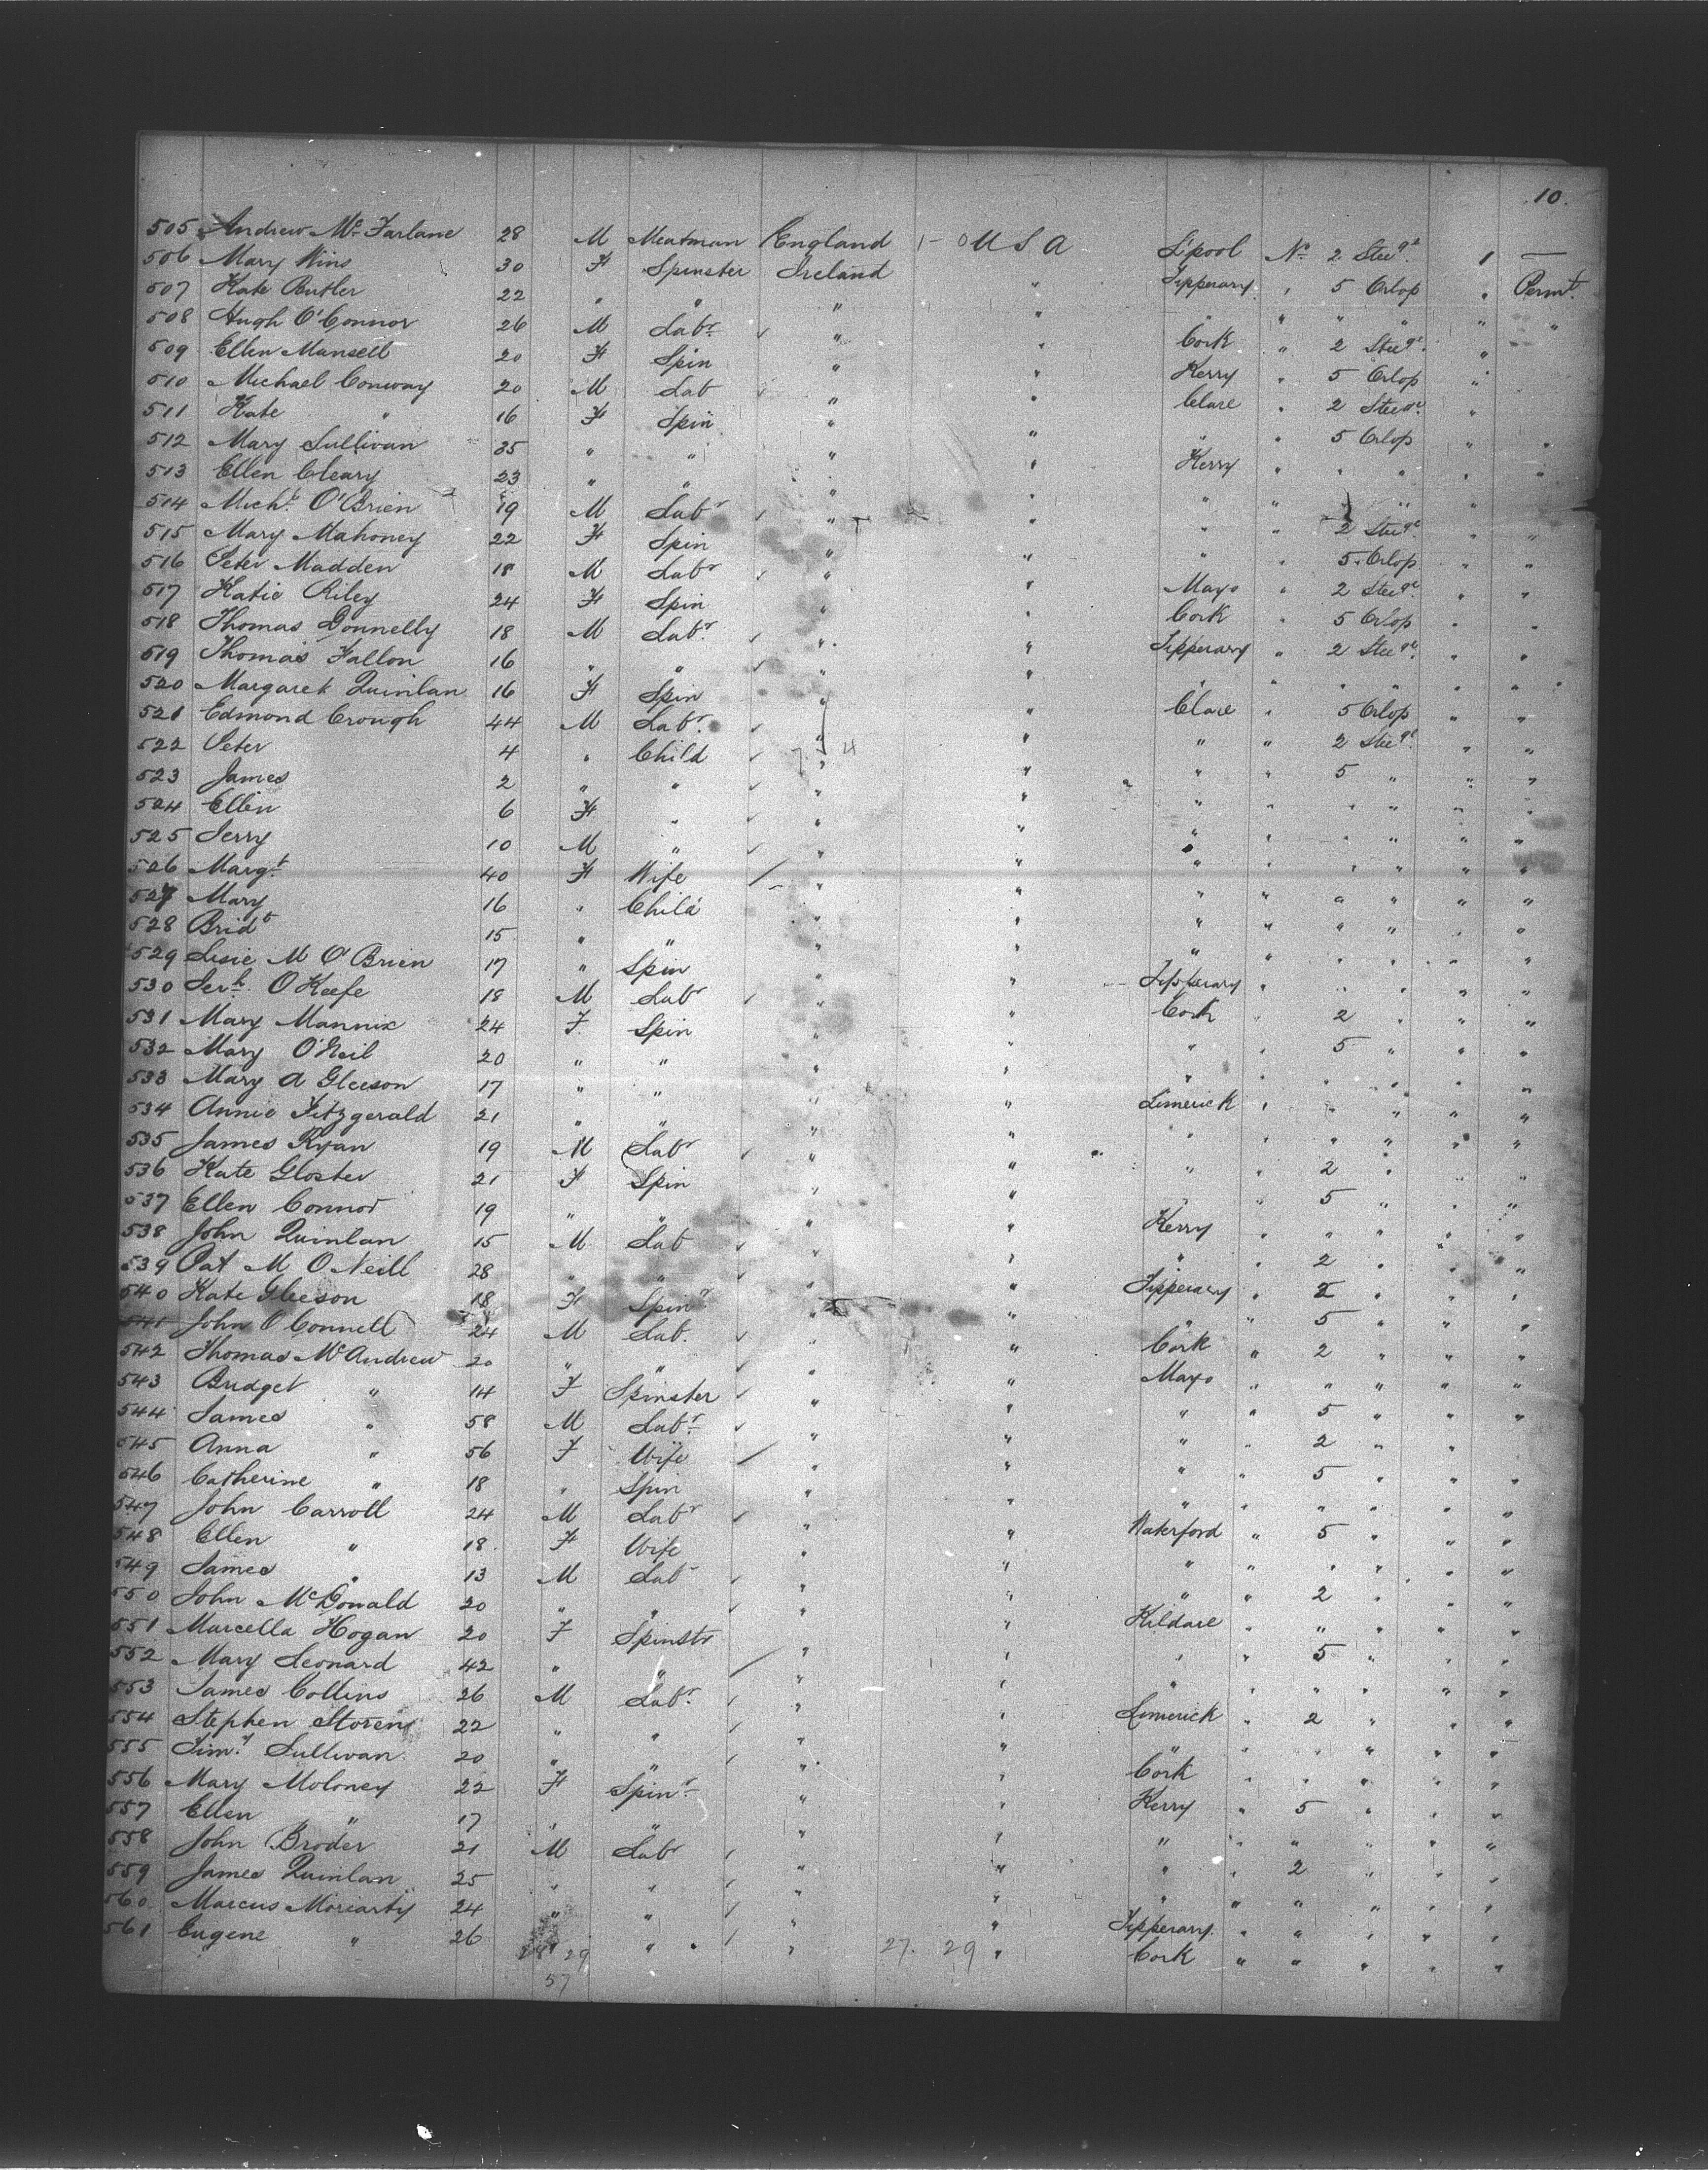 10.
505 Andrew Mc Farlane 28 M Meatman England 1 - 0 U S A L'pool No 2 Steege 1 —
506 Mary Wins 30 F Spinster Ireland " Tipperary " 5 Orlop " Permt.
507 Kate Butler 22 " " " " " " " " " "
508 Hugh O'Connor 26 M Labr " " Cork " 2 Steege "
509 Ellen Mansell 20 F Spin " " Kerry " 5 Orlop "
510 Michael Conway 20 M Lab " " Clare " 2 Steege "
511 Kate " 16 F Spin " " " " 5 Orlop " "
512 Mary Sullivan 35 " " " " Kerry " " " " "
513 Ellen Cleary 23 " " " " " " " " "
514 Michl. O'Brien 19 M Labr " " " " 2 Steege " "
515 Mary Mahoney 22 F Spin " " " " 5 Orlop " "
516 Peter Madden 18 M Labr " " Mayo " 2 Steege " "
517 Katie Riley 24 F Spin " " Cork " 5 Orlop " "
518 Thomas Donnelly 18 M Labr. " " Tipperary " 2 Steege " "
519 Thomas Fallon 16 " " " " " " " " " "
520 Margaret Quinlan 16 F Spin " " Clare " 5 Orlop " "
521 Edmond Crough 44 M Labr. " " " " 2 Steege " "
522 Peter 4 " Child " " " " 5 " " "
523 James 2 " " " " " " " " " "
524 Ellen 6 F " " " " " " " " "
525 Jerry 10 M " " " " " " " " "
526 Margt. 40 F Wife " " " " " " " "
527 Mary 16 " Child " " " " " " " "
528 Bridt 15 " " " " " " " " " "
529 Lisie M O'Brien 17 " Spin " " Tipperary " " " " "
530 Jerh. O Keefe 18 M Labr " " Cork " 2 " " "
531 Mary Mannix 24 F. Spin " " " " 5 " " "
532 Mary O'Neil 20 " " " " " " " " " "
533 Mary A Gleeson 17 " " " " Limerick " " " " "
534 Annie Fitzgerald 21 " " " " " " " " " "
535 James Ryan 19 M Labr " " " " 2 " " "
536 Kate Gloster 21 F Spin " " " " 5 " " "
537 Ellen Connor 19 " " " " Kerry " " " " "
538 John Quinlan 15 M Lab " " " " 2 " " "
539 Pat M O Neill 28 " " " " Tipperary " 2 " " "
540 Kate Gleeson 18 F Spinr " " " " 5 " " "
541 John O Connell 24 M Lab. " " Cork " 2 " " "
542 Thomas McAndrew 20 " " " " Mayo " " " " "
543 Bridget " 14 F Spinster " " " " 5 " " "
544 James " 58 M Labr " " " " 2 " " "
545 Anna " 56 F Wife " " " " 5 " " "
546 Catherine " 18 " Spin " " " " " " " "
547 John Carroll 24 M Labr " " Waterford " 5 " " "
548 Ellen " 18 F Wife " " " " " " " "
549 James " 13 M Lab " " " " 2 " " "
550 John McDonald 20 " " " " Kildare " " " " "
551 Marcella Hogan 20 F Spinstr " " " " 5 " " "
552 Mary Leonard 42 " " " " " " " " " "
553 James Collins 26 M Labr. " " Limerick " 2 " " "
554 Stephen Storeny 22 " " " " " " " " " "
555 Timy Sullivan 20 " " " " Cork " " " " "
556 Mary Moloney 22 F Spinr " " Kerry " 5 " " "
557 Ellen " 17 " " " " " " " " " "
558 John Broder 21 M Labr " " " " 2 " " "
559 James Quinlan 25 " " " " " " " " " "
560 Marcus Moriarty 24 " " " " Tipperary " " " " "
561 Eugene " 26 " " " " Cork " " " " "
28 29 27. 29
57